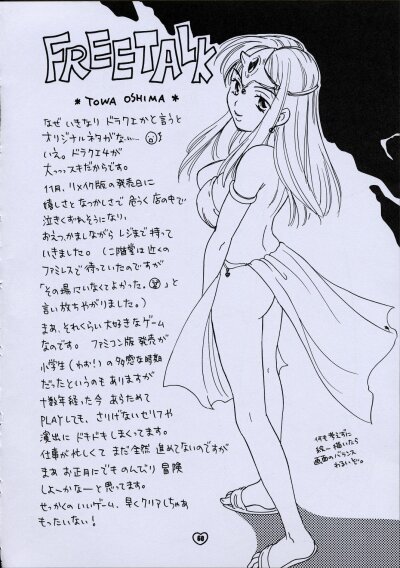 FREETALK
* TOWA OSHIMA *
なぜ いきなり ドラクエかと言うと
オリジナルネタがない…
いえ。ドラクエ4が
大っっスキだからです。
11月、リメイク版の発売日に
嬉しさと なつかしさで 危うく 店の中で
泣きくずれそうになり、
おえつ、かましながら レジまで持って
いきました。(二階堂は近くの
ファミレスで待っていたのですが
「その場にいなくてよかった。」と
言い放ちやがりました。)
まあ、それくらい大好きなゲーム
なのです。ファミコン版 発売が
小学生(わお!)の多感な時期
だったというのも ありますが
十数年経った今 あらためて
PLAYしても、さりげないセリフや
演出に ドキドキしまくってます。
仕事が忙しくて まだ全然 進めてないのですが
まあ お正月にでも のんびり 冒険
しよーかなーと思ってます。
せっかくのいいゲーム、早くクリアしちゃあ
もったいない!
何も考えずに
絵一描いたら
画面のバランス
わるいぞ。